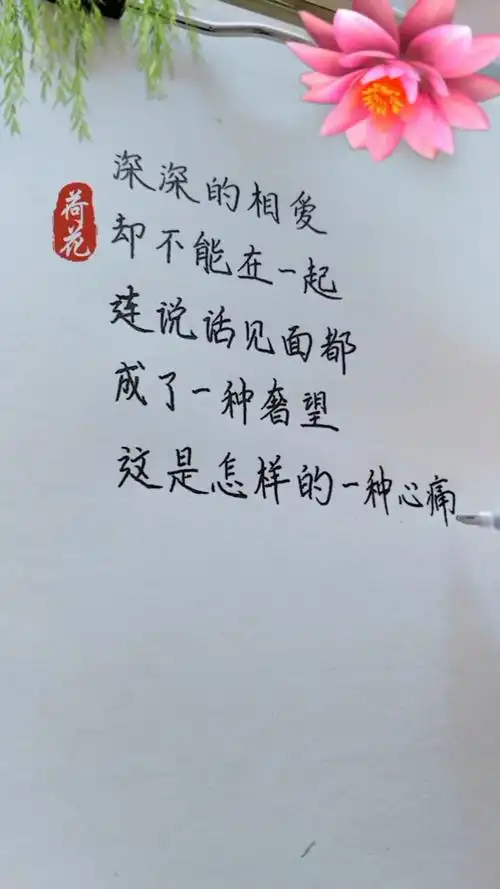 深深的相爱
却不能在一起
莲说话见面都
成了一种奢望
这是怎样的一种心痛
荷花